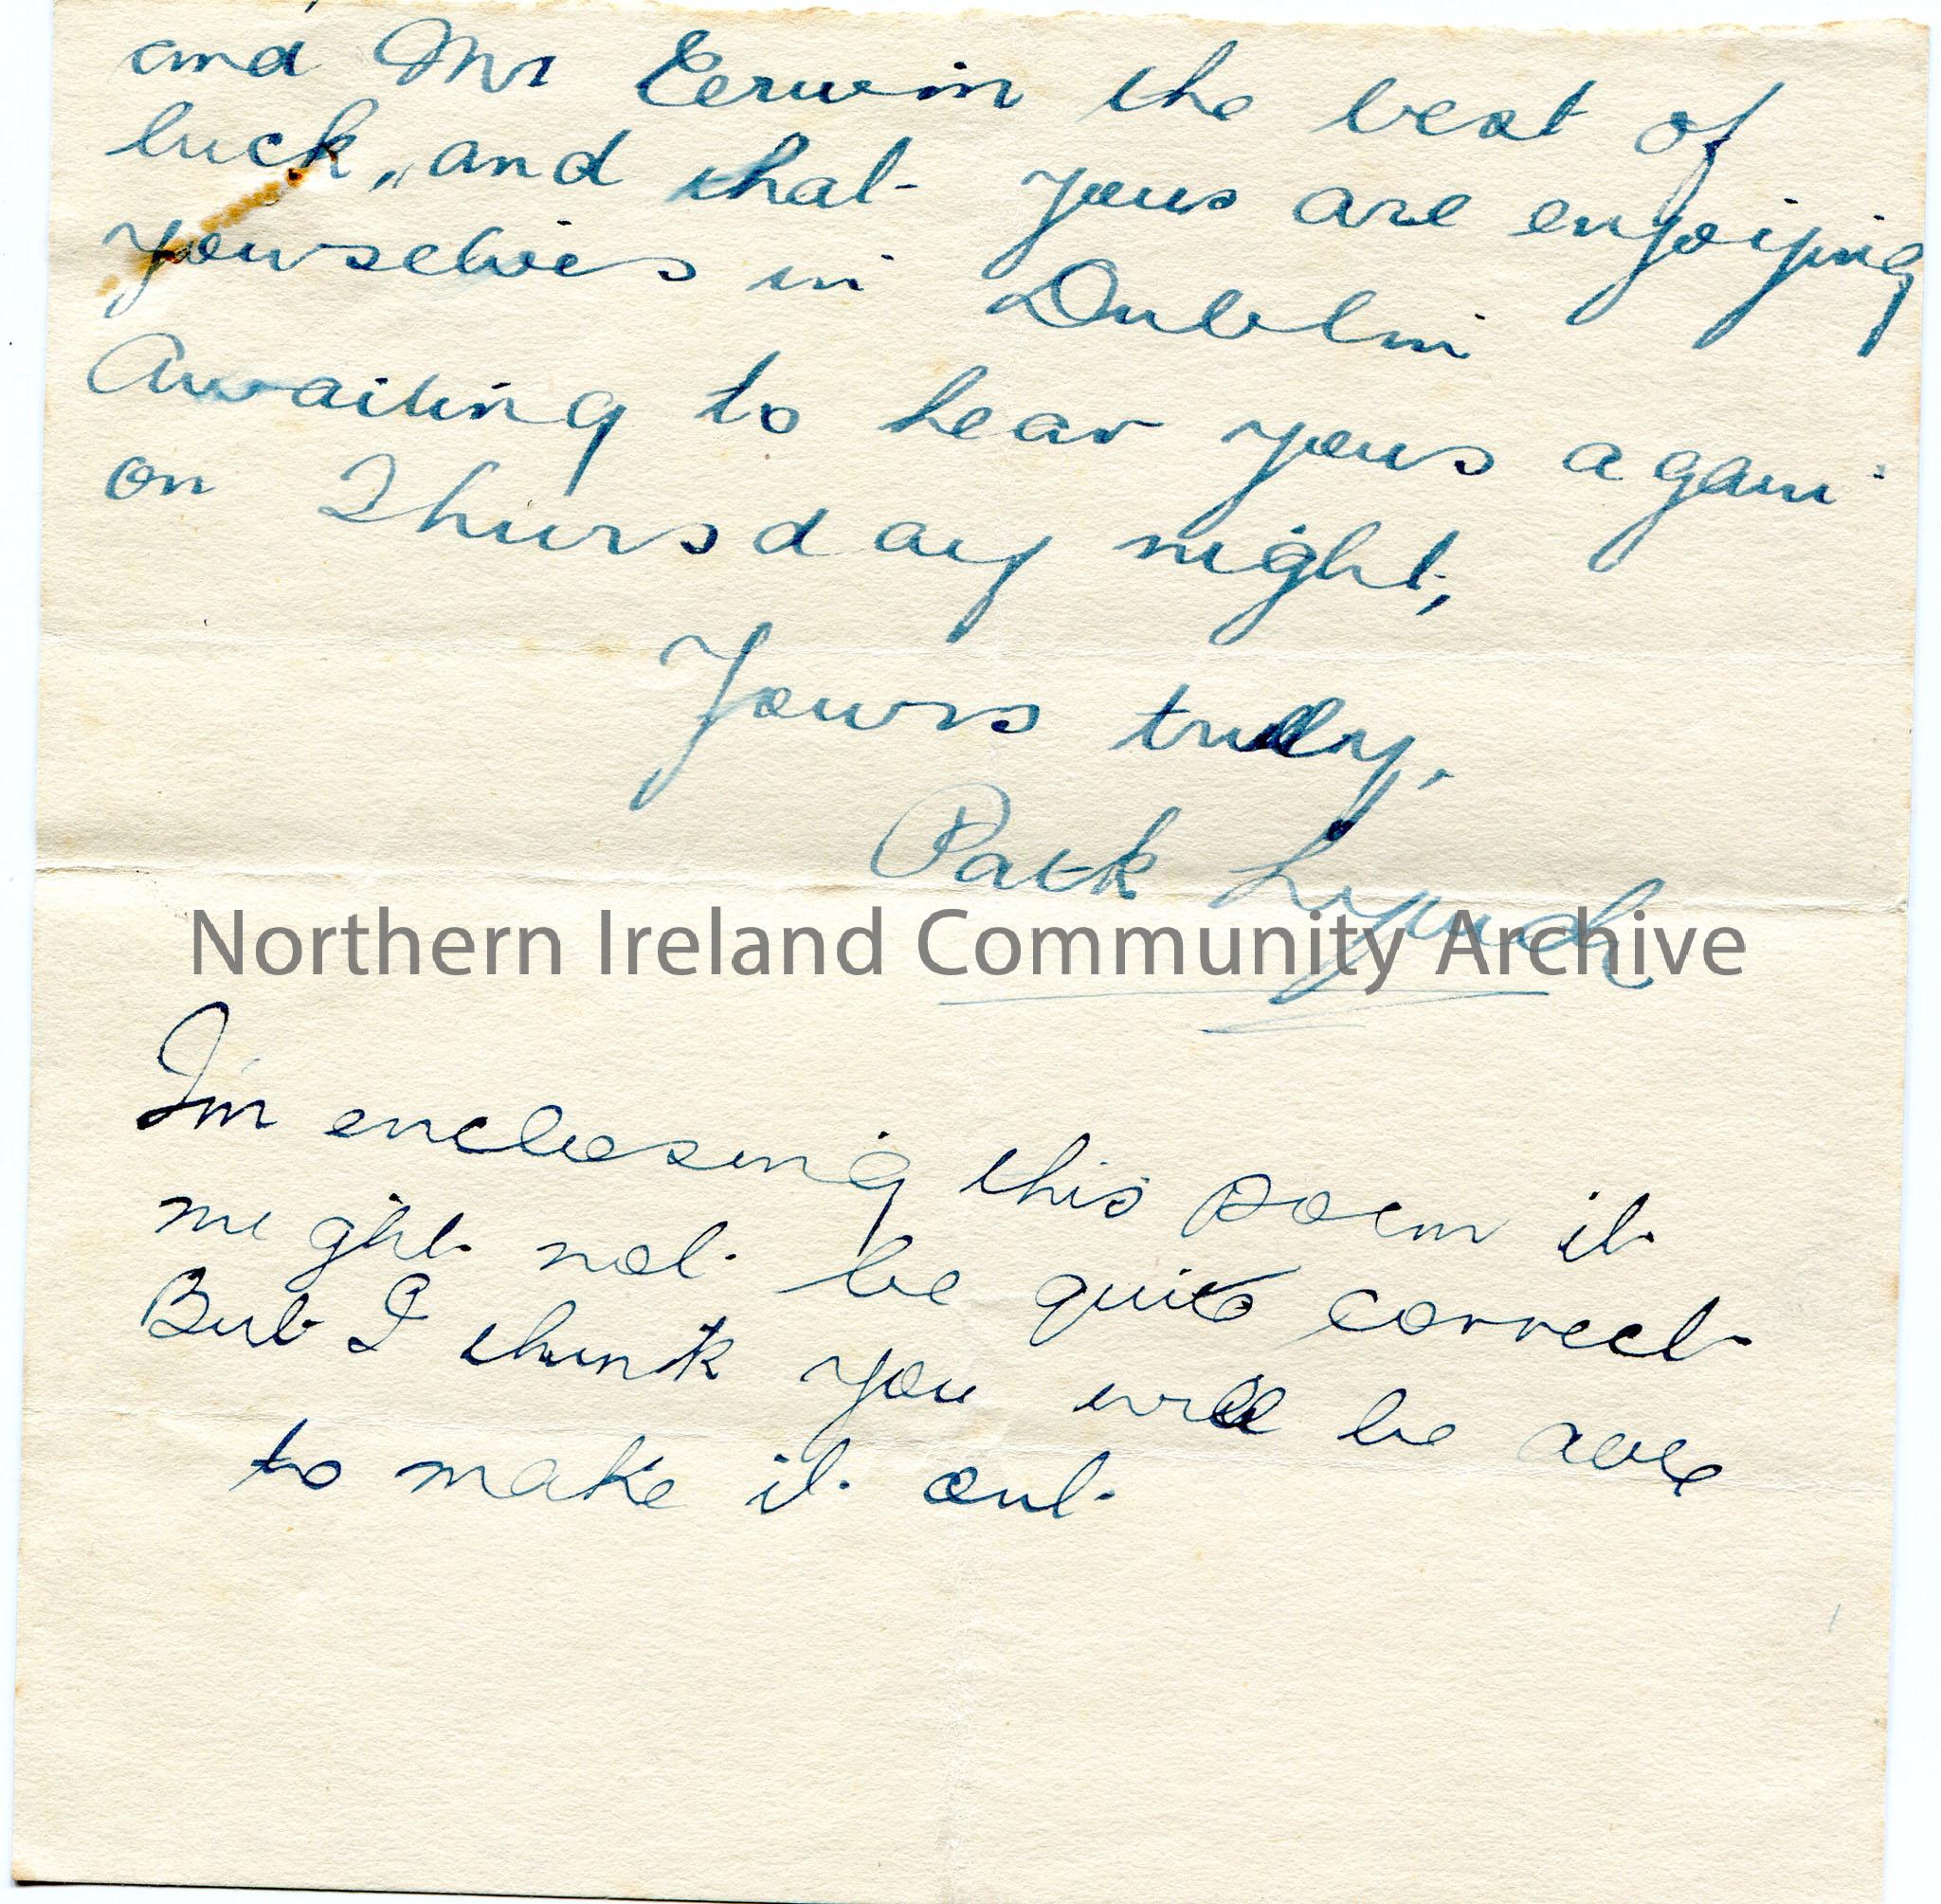 and Mr Eerwin the best of
luck, and that yous are enjoying
yourselves in Dublin
Awaiting to hear yous again
on Thursday night,
Yours truly,
Patk Lynch
Northern Ireland Community Archive
I'm enclosing this poem it
might not be quite correct
But I think you will be able
to make it out.